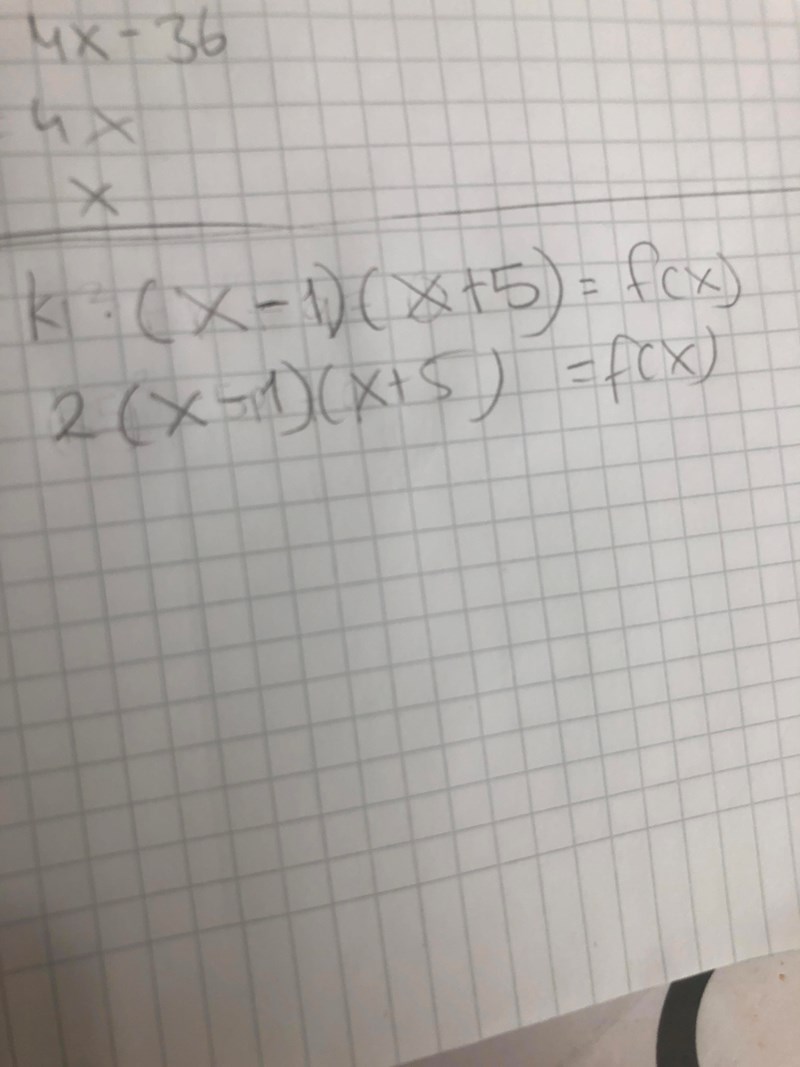 4x-36
4x
x
k·(x-1)(x+5)=f(x)
2(x-1)(x+5)=f(x)